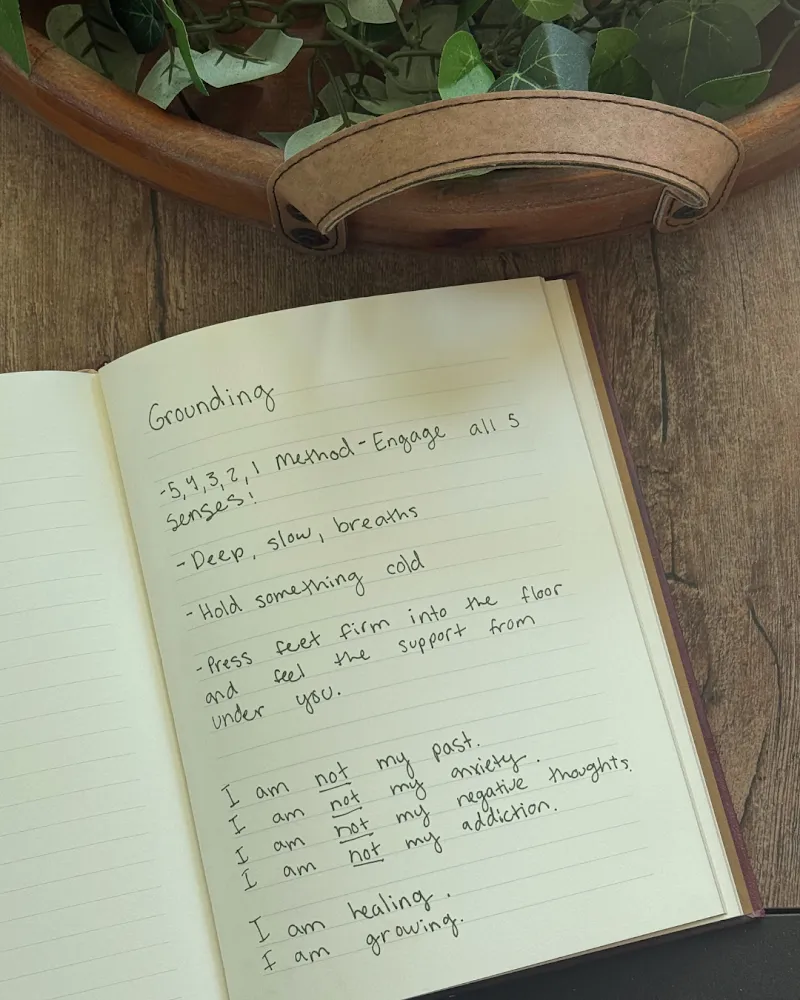 Grounding
-5,4,3,2,1 Method - Engage all 5
senses!
- Deep, slow, breaths
- Hold something cold
- Press feet firm into the floor
and feel the support from
under you.
I am not my past.
I am not my anxiety.
I am not my negative thoughts.
I am not my addiction.
I am healing.
I am growing.